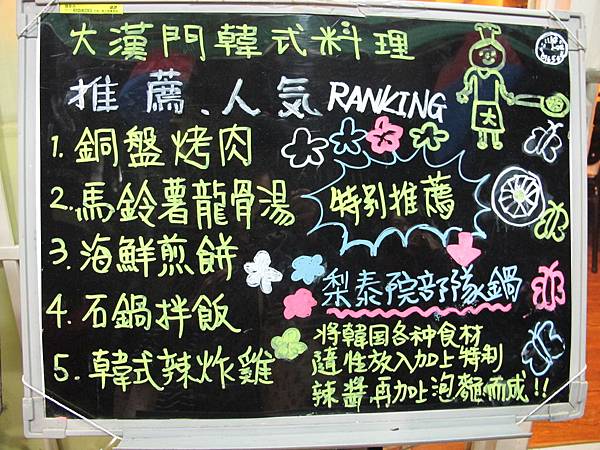 大漢門韓式料理
推薦、人気RANKING
1. 銅盤烤肉
2. 馬鈴薯龍骨湯
3. 海鮮煎餅
4. 石鍋拌飯
5. 韓式辣炸雞
特別推薦
梨泰院部隊鍋
將韓国各种食材
隨性放入加上特制
辣醬再加上泡麵而成!!
大